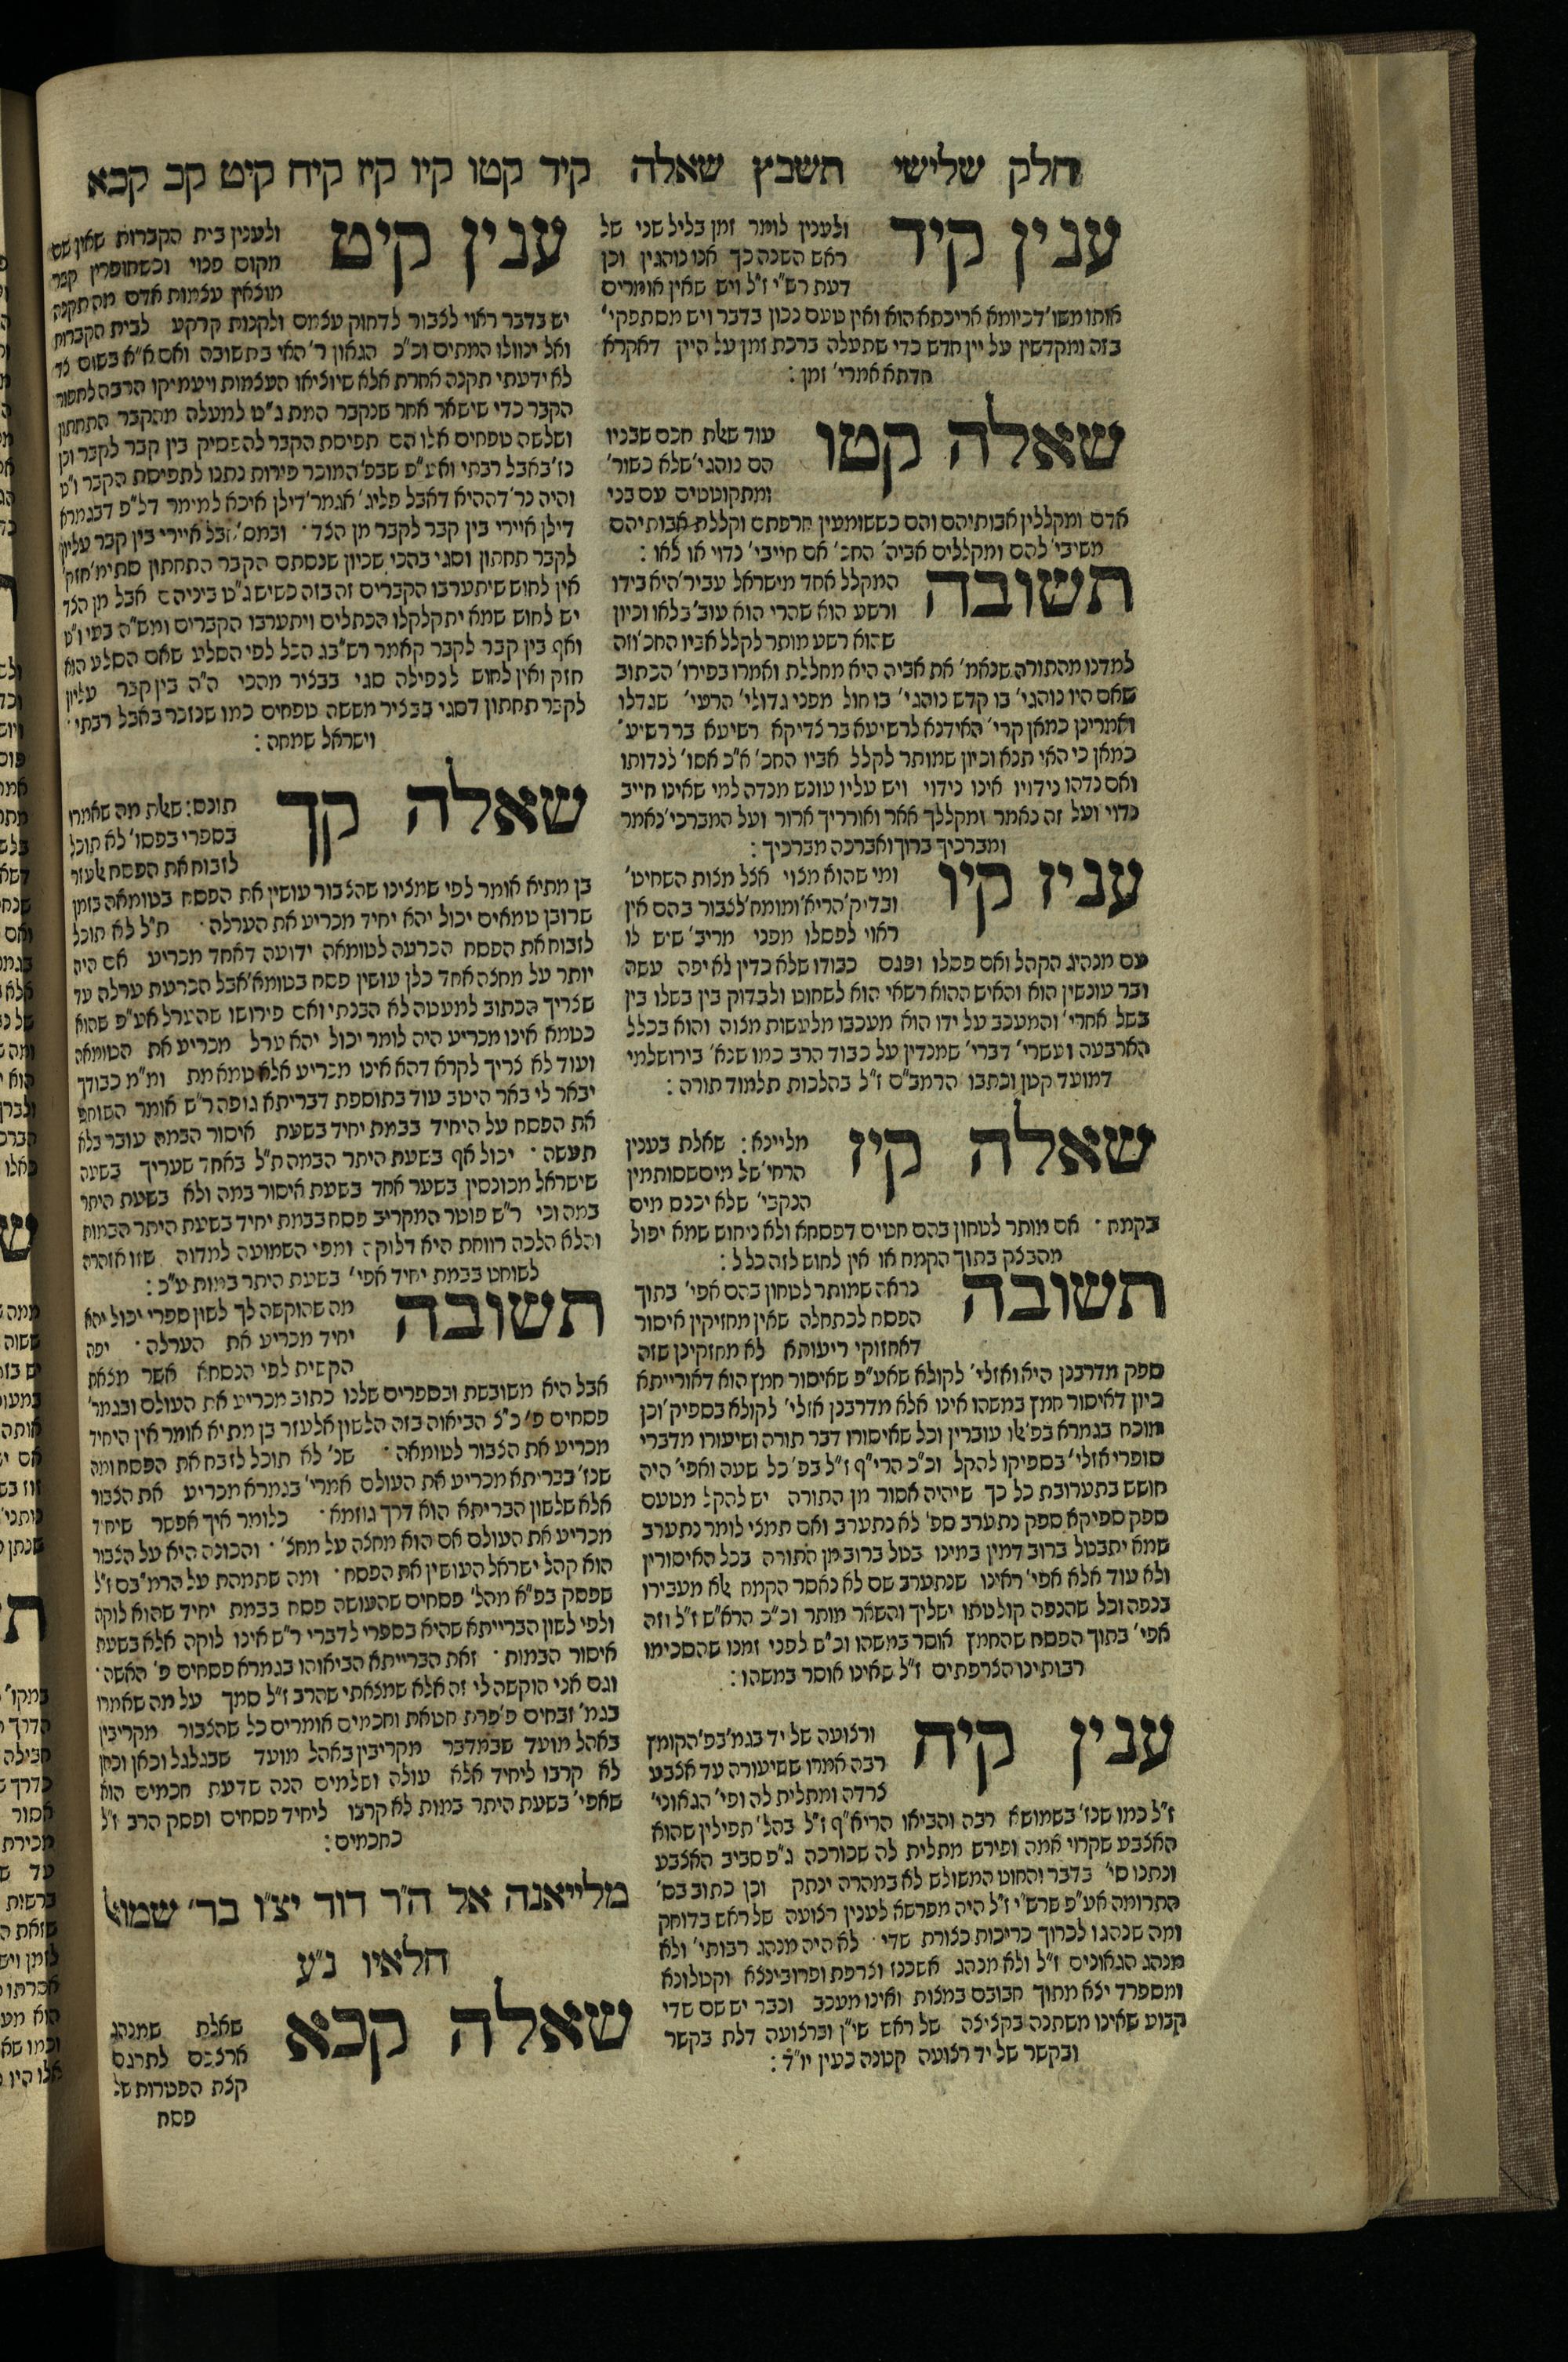 חלק שלישי תשבץ שאלה קיד קטו קיו קיז קיח קיט קכ קכא
ענין קיד ולענין לומר זמן בליל שני של
ראש השנה כך אנו נוהגין וכן
דעת רש"י ז"ל ויש שאין אומרים
אותו משו' דכיומא אריכתא הוא ואין טעם נכון בדבר ויש מסתפקי'
בזה ומקדשין על יין חדש כדי שתעלה ברכת זמן על היין דאקרא
חדתא אמרי' זמן :
שאלה קטו עוד שאלת חכם שבניו
הם נוהגי' שלא כשור'
ומתקוטטים עם בני
אדם ומקללין אבותיהם והם כששומעין חרפתם וקללת אבותיהם
משיבי' להם ומקללים אביה' החכ' אם חייבי' נדוי או לאו :
תשובה המקלל אחד מישראל עביר' היא בידו
ורשע הוא שהרי הוא עוב' בלאו וכיון
שהוא רשע מותר לקלל אביו החכ' וזה
למדנו מהתורה שנאמ' את אביה היא מחללת ואמרו בפירו' הכתוב
שאם היו נוהגי' בו קדש נוהגי' בו חול מפני גדולי' הרעי' שגדלו
ואמרינן כמאן קרי' האידנא לרשיעא בר צדיקא רשיעא בר רשיע'
כמאן כי האי תנא וכיון שמותר לקלל אביו החכ' א"כ אסו' לנדותו
ואם נדהו נידויו אינו נידוי ויש עליו עונש מנדה למי שאינו חייב
נדוי ועל זה נאמר ומקללך אאר ואורריך ארור ועל המברכי' נאמר
ומברכיך ברוך ואברכה מברכיך :
ענין קיו ומי שהוא מצוי אצל מצות השחיט'
ובדיק' הריא' ומומח' לצבור בהם אין
ראוי לפסלו מפני מריב' שיש לו
עם מנהיג הקהל ואם פסלו ופגם כבודו שלא כדין לא יפה עשה
ובר עונשין הוא והאיש ההוא רשאי הוא לשחוט ולבדוק בין בשלו בין
בשל אחרי' והמעכב על ידו הוא מעכבו מלעשות מצוה והוא בכלל
הארבעה ועשרי' דברי' שמנדין על כבוד הרב כמו שנא' בירושלמי
דמועד קטן וכתבו הרמב"ם ז"ל בהלכות תלמוד תורה :
שאלה קיז מלייאנא : שאלת בענין
הרחי' של מים שסותמין
הנקבי' שלא יכנס מים
בקמח · אם מותר לטחון בהם חטים דפסחא ולא ניחוש שמא יפול
מהבצק בתוך הקמח או אין לחוש לזה כלל :
תשובה נראה שמותר לטחון בהם אפי' בתוך
הפסח לכתחלה שאין מחזיקין איסור
דאחזוקי ריעותא לא מחזקינן שזה
ספק מדרבנן היא ואזלי' לקולא שאע"פ שאיסור חמץ הוא דאורייתא
כיון דאיסור חמץ במשהו אינו אלא מדרבנן אזלי' לקולא בספיק' וכן
מוכח בגמרא בפ' אלו עוברין וכל שאיסורו דבר תורה ושיעורו מדברי
סופרי אזלי' בספיקו להקל וכ"כ הרי"ף ז"ל בפ' כל שעה ואפי' היה
חושש בתערובת כל כך שיהיה אסור מן התורה יש להקל מטעם
ספק ספיקא ספק נתערב ספ' לא נתערב ואם תמצי לומר נתערב
שמא יתבטל ברוב דמין במינו בטל ברוב מן התורה בכל האיסורין
ולא עוד אלא אפי' ראינו שנתערב שם לא נאסר הקמח אלא מעבירו
בנפה וכל שהנפה קולטתו ישליך והשאר מותר וכ"כ הרא"ש ז"ל וזה
אפי' בתוך הפסח שהחמץ אוסר במשהו וכ"ש לפני זמנו שהסכימו
רבותינו הצרפתים ז"ל שאינו אוסר במשהו :
ענין קיח ורצועה של יד בגמ' בפ' הקומץ
רבה אמרו ששיעורה עד אצבע
צרדה ומתלית לה ופי' הגאוני'
ז"ל כמו שנז' בשמושא רבה והביאו הריא"ף ז"ל בהל' תפילין שהוא
האצבע שקרוי אמה ופירש מתלית לה שכורכה ג"פ סביב האצבע
ונתנו סי' בדבר והחוט המשולש לא במהרה ינתק וכן כתוב בס'
התרומה אע"פ שרש"י ז"ל היה מפרשא לענין רצועה של ראש בדוחק
ומה שנהגו לכרוך כריכות כצורת שדי · לא היה מנהג רבותי' ולא
מנהג הגאונים ז"ל ולא מנהג אשכנז וצרפת ופרובינצא וקטלוניא
ומספרד יצא מתוך חבובם במצות ואינו מעכב וכבר יש שם שדי
קבוע שאינו משתנה בקציצה של ראש שי"ן וברצועה דלת בקשר
ובקשר של יד רצועה קטנה כעין יו"ד :
ענין קיט ולענין בית הקברות שאין שם
מקום פנוי וכשחופרין קבר
מוצאין עצמות אדם מה תקנה
יש בדבר ראוי לצבור לדחוק עצמם ולקנות קרקע לבית הקברות
ואל ינוולו המתים וכ"כ הגאון ר' האי בתשובה ואם א"א בשום צד
לא ידעתי תקנה אחרת אלא שיוציאו העצמות ויעמיקו הרבה לחפור
הקבר כדי שישאר אחר שנקבר המת ג"ט למעלה מהקבר התחתון
ושלשה טפחים אלו הם תפיסת הקבר להפסיק בין קבר לקבר וכן
נז' באבל רבתי ואע"פ שבפ' המוכר פירות נתנו לתפיסת הקבר ו"ט
והיה נר' דההיא דאבל פליג' אגמר' דילן איכא למימר דל"פ דבגמרא
דילן איירי בין קבר לקבר מן הצד · ובמס' אבל איירי בין קבר עליון
לקבר תחתון וסגי בהכי שכיון שנסתם הקבר התחתון סתימ' חזק'
אין לחוש שיתערבו הקברים זה בזה כשיש ג"ט ביניהם אבל מן הצד
יש לחוש שמא יתקלקלו הכתלים ויתערבו הקברים ומש"ה בעי ו"ט
ואף בין קבר לקבר קאמר רש"בג הכל לפי הסלע שאם הסלע הוא
חזק ואין לחוש לנפילה סגי בבציר מהכי ה"ה בין קבר עליון
לקבר תחתון דסגי בבציר מששה טפחים כמו שנזכר באבל רבתי ·
וישראל שמחה :
שאלה קך תונס : שאלת מה שאמרו
בספרי בפסו' לא תוכל
לזבוח את הפסח אלעזר
בן מתיא אומר לפי שמצינו שהצבור עושין את הפסח בטומאה בזמן
שרובן טמאים יכול יהא יחיד מכריע את הערלה · ת"ל לא תוכל
לזבוח את הפסח הכרעה לטומאה ידועה דאחד מכריע אם היה
יותר על מחצה אחד כלן עושין פסח בטומא' אבל הכרעת ערלה עד
שצריך הכתוב למעטה לא הבנתי ואם פירושו שהערל אע"פ שהוא
כטמא אינו מכריע היה לומר יכול יהא ערל מכריע את הטומאה
ועוד לא צריך לקרא דהא אינו מכריע אלא טמא מת ומ"מ כבודך
יבאר לי באר היטב עוד בתוספת דבריתא גופה ר"ש אומר השוחט
את הפסח על היחיד בבמת יחיד בשעת איסור הבמה עובר בלא
תעשה · יכול אף בשעת היתר הבמה ת"ל באחד שעריך בשעה
שישראל מכונסין בשער אחד בשעת איסור במה ולא בשעת היתר
במה וכי ר"ש פוטר המקריב פסח בבמת יחיד בשעת היתר הבמות
והלא הלכה רווחת היא דלוקה ומפי השמועה למדוה שזו אזהרה
לשוחט בבמת יחיד אפי' בשעת היתר במות ע"כ :
תשובה מה שהוקשה לך לשון ספרי יכול יהא
יחיד מכריע את הערלה · יפה
הקשית לפי הנסחא אשר מצאת
אבל היא משובשת ובספרים שלנו כתוב מכריע את העולם ובגמר'
פסחים פ' כ"צ הביאוה בזה הלשון אלעזר בן מתיא אומר אין היחיד
מכריע את הצבור לטומאה · שנ' לא תוכל לזבח את הפסח ומה
שנז' בבריתא מכריע את העולם אמרי' בגמרא מכריע את הצבור
אלא שלשון הבריתא הוא דרך גוזמא · כלומר איך אפשר שיחיד
מכריע את העולם אם הוא מחצה על מחצ' · והכונה היא על הצבור
הוא קהל ישראל העושין את הפסח · ומה שתמהת על הרמ"בם ז"ל
שפסק בפ"א מהל' פסחים שהעושה פסח בבמת יחיד שהוא לוקה
ולפי לשון הברייתא שהיא בספרי לדברי ר"ש אינו לוקה אלא בשעת
איסור הבמות · זאת הברייתא הביאוהו בגמרא פסחים פ' האשה ·
וגם אני הוקשה לי זה אלא שמצאתי שהרב ז"ל סמך על מה שאמרו
בגמ' זבחים פ' פרת חטאת וחכמים אומרים כל שהצבור מקריבין
באהל מועד שבמדבר מקריבין באהל מועד שבגלגל וכאן וכאן
לא קרבו ליחיד אלא עולה ושלמים הנה שדעת חכמים הוא
שאפי' בשעת היתר במות לא קרבו ליחיד פסחים ופסק הרב ז"ל
כחכמים :
מלייאנה אל ה"ר דוד יצ"ו בר' שמואל
חלאיו נ"ע
שאלה קכא שאלת שמנהג
ארצכם לתרגם
קצת הפטרות של
פסח